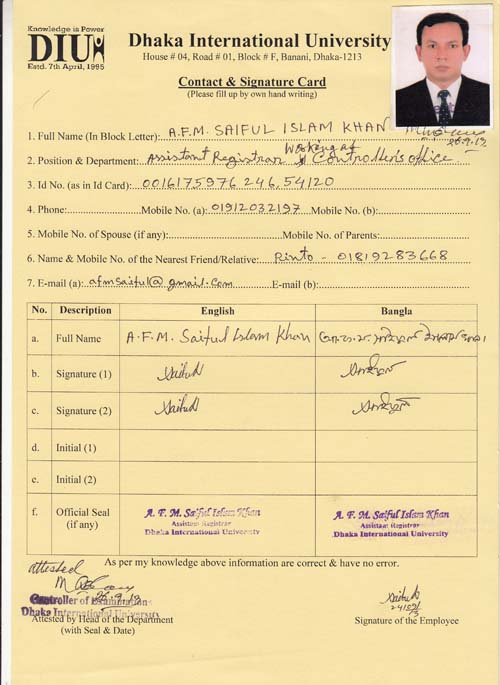 Knowledge is Power
DIU
Estd. 7th April, 1995
Dhaka International University
House # 04, Road # 01, Block # F, Banani, Dhaka-1213
Contact & Signature Card
(Please fill up by own hand writing)
1. Full Name (In Block Letter): A.F.M. SAIFUL ISLAM KHAN
2. Position & Department: Assistant Registrar Working at Controller's office
3. Id No. (as in Id Card): 0016175976 246, 54120
4. Phone: Mobile No. (a): 01912032197 Mobile No. (b):
5. Mobile No. of Spouse (if any): Mobile No. of Parents:
6. Name & Mobile No. of the Nearest Friend/Relative: Rinto - 01819283668
7. E-mail (a): afmsaiful@gmail.com E-mail (b):
No. Description English Bangla
a. Full Name A.F.M. Saiful Islam Khan
b. Signature (1) Saiful
c. Signature (2) Saiful
d. Initial (1)
e. Initial (2)
f. Official Seal (if any)
A. F. M. Saiful Islam Khan
Assistant Registrar
Dhaka International University
A. F. M. Saiful Islam Khan
Assistant Registrar
Dhaka International University
As per my knowledge above information are correct & have no error.
Attested
Controller of Examination
Dhaka International University
Attested by Head of the Department
(with Seal & Date)
Saiful
Signature of the Employee